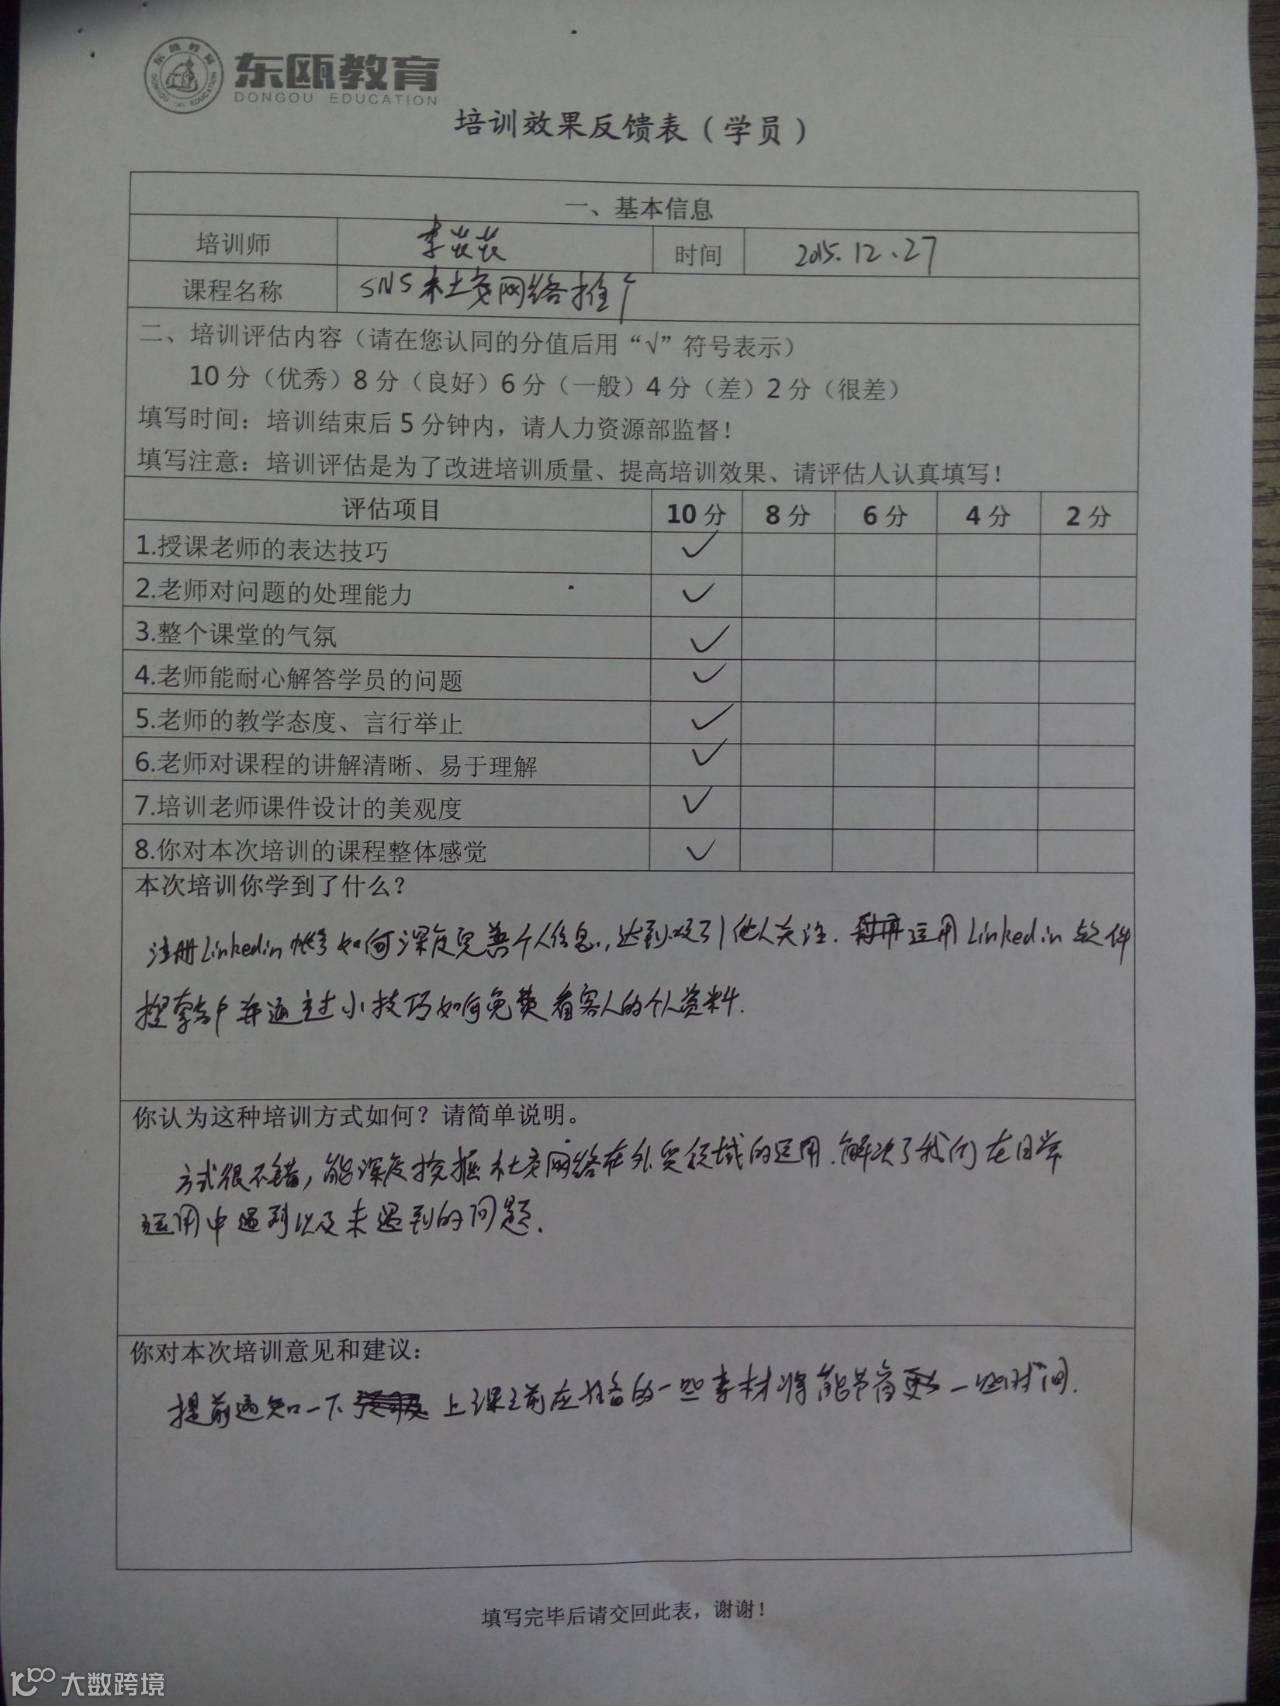 东瓯教育
DONGOU EDUCATION
培训效果反馈表（学员）
一、基本信息
培训师 李苂苂 时间 2015.12.27
课程名称 SNS社交网络推广
二、培训评估内容（请在您认同的分值后用“√”符号表示）
10分（优秀）8分（良好）6分（一般）4分（差）2分（很差）
填写时间：培训结束后5分钟内，请人力资源部监督！
填写注意：培训评估是为了改进培训质量、提高培训效果、请评估人认真填写！
评估项目 10分 8分 6分 4分 2分
1.授课老师的表达技巧 ✓
2.老师对问题的处理能力 ✓
3.整个课堂的气氛 ✓
4.老师能耐心解答学员的问题 ✓
5.老师的教学态度、言行举止 ✓
6.老师对课程的讲解清晰、易于理解 ✓
7.培训老师课件设计的美观度 ✓
8.你对本次培训的课程整体感觉 ✓
本次培训你学到了什么？
注册Linkedin 如何深度完善个人信息，达到吸引他人关注. 运用Linkedin软件
并通过小技巧如何免费看客人的个人资料.
你认为这种培训方式如何？请简单说明。
方式很不错，能深度挖掘社交网络在外贸领域的运用.解决了我们在日常
运用中遇到以及未遇到的问题.
你对本次培训意见和建议：
提前通知一下 上课之前应准备的一些素材将能节省更多一些时间.
填写完毕后请交回此表，谢谢！
大数跨境